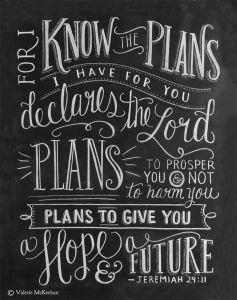 FOR I KNOW THE PLANS
I HAVE FOR YOU
declares the Lord
PLANS TO PROSPER
YOU & NOT
to harm you
PLANS TO GIVE YOU
a Hope & a FUTURE
— JEREMIAH 29:11
© Valerie McKeehan